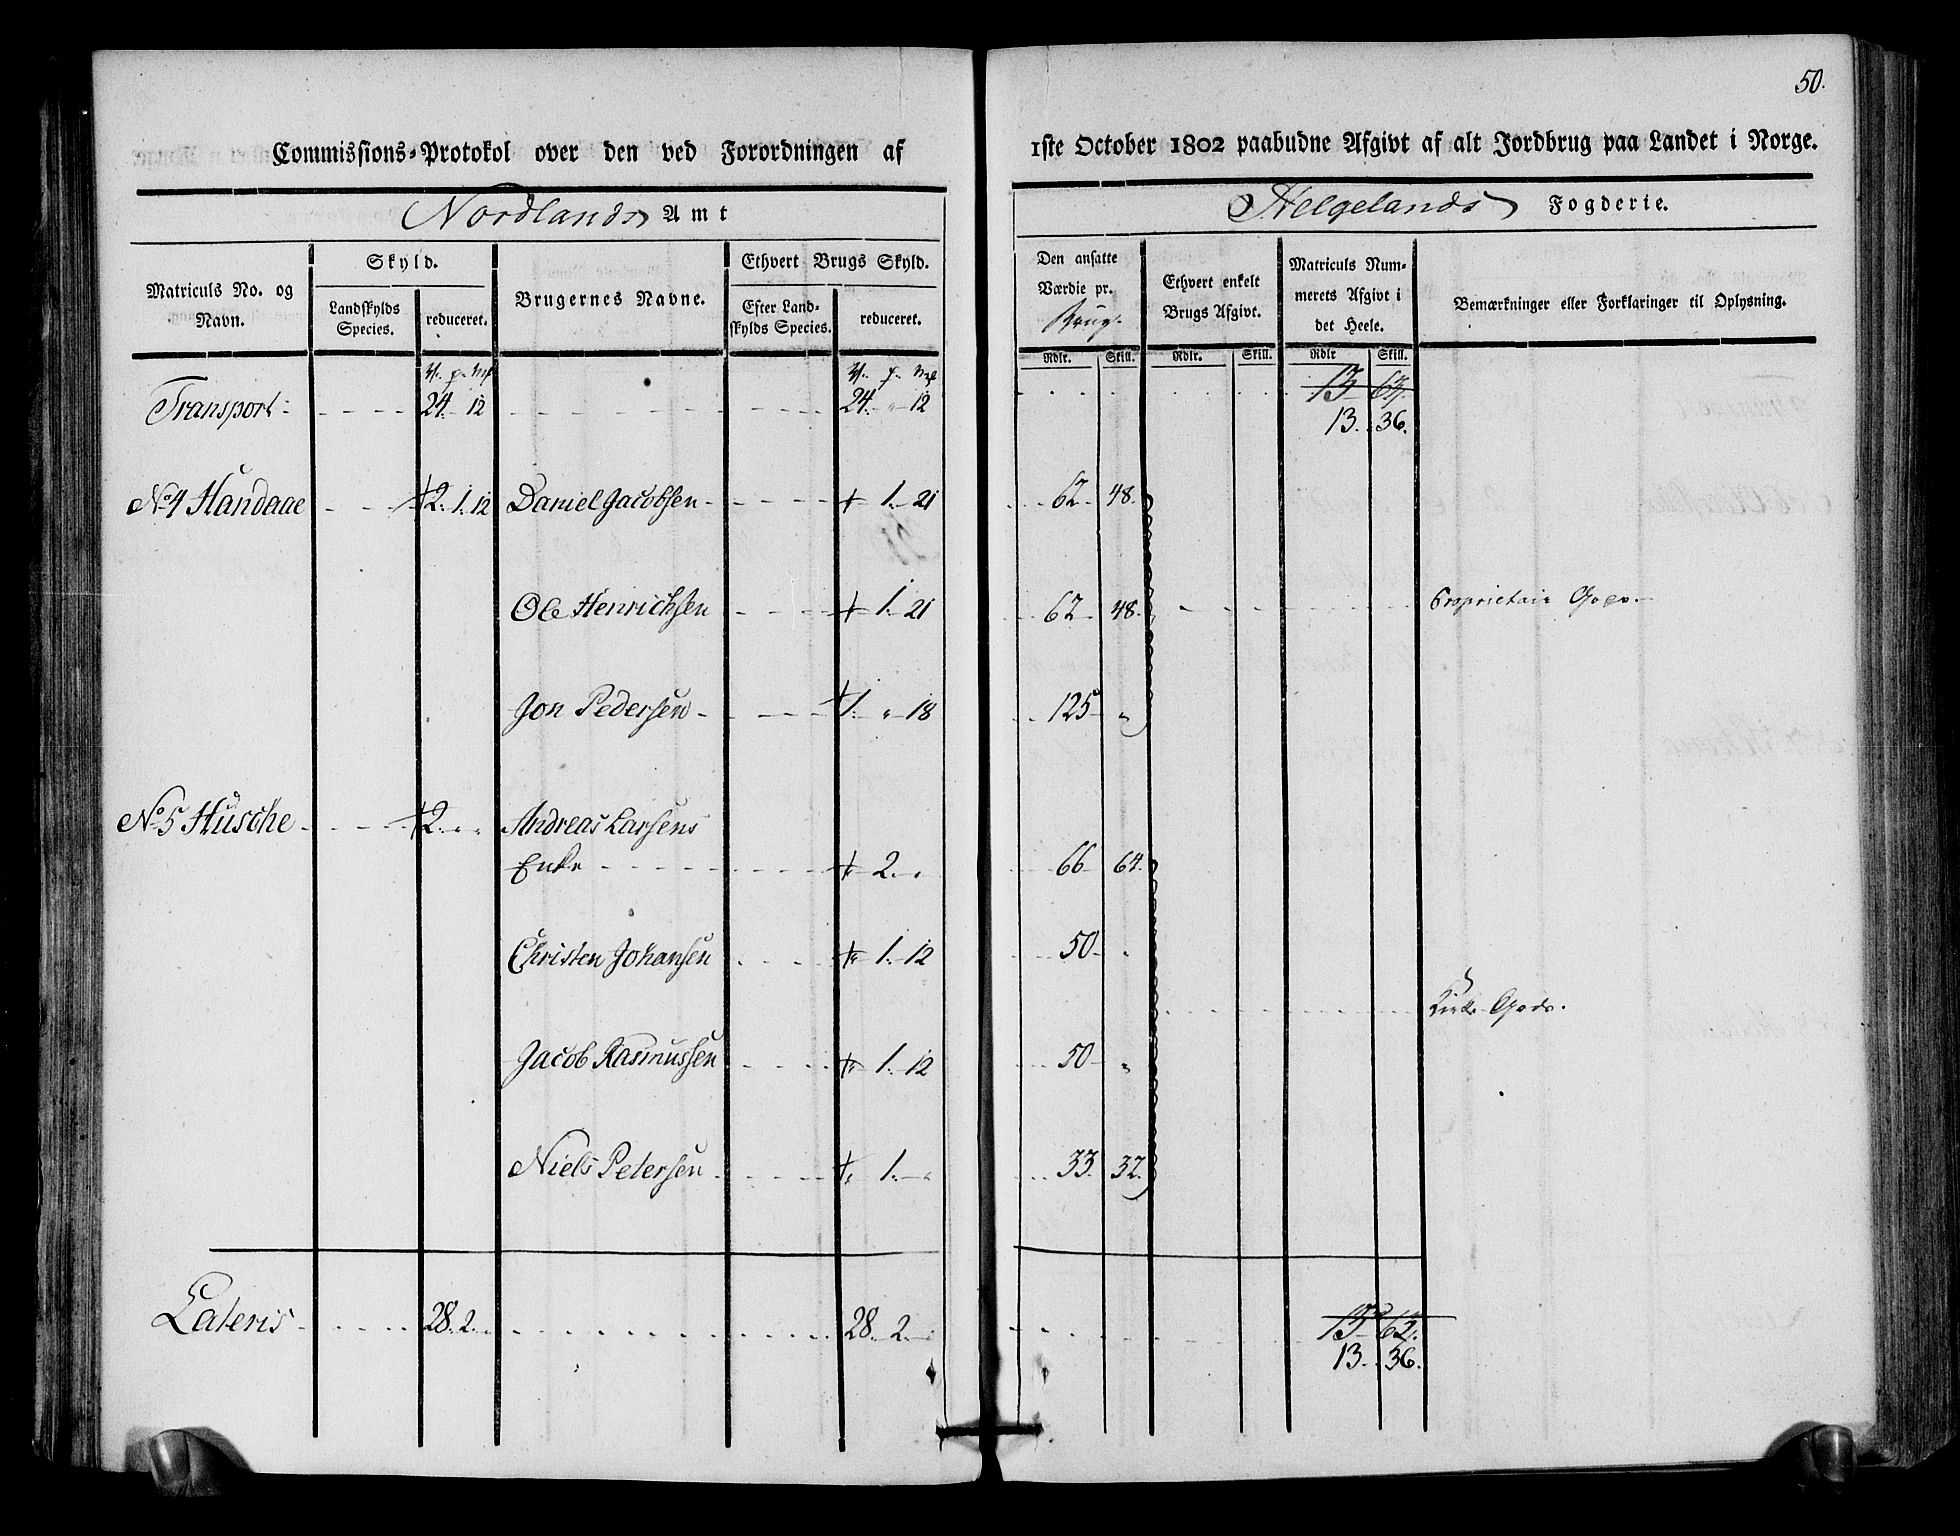 50.
Commissions-Protokol over den ved Forordningen af 1ste October 1802 paabudne Afgivt af alt Jordbrug paa Landet i Norge.
Nordlands Amt Helgelands Fogderie.
Matriculs No. og Navn.
Skyld.
Landskylds Species.
reduceret.
Brugernes Navne.
Ethvert Brugs Skyld.
Efter Landskylds Species.
reduceret.
Den ansatte Værdie pr. Brug.
Ethvert enkelt Brugs Afgivt.
Matriculs Nummerets Afgivt i det Heele.
Bemærkninger eller Forklaringer til Oplysning.
Rdlr. Skill. Rdlr. Skill. Rdlr Skill.
V. p. Mk V. p. Mk
Transport 24. 12 24. " 12 13 64.
13. 36.
No 4 Handaae 2. 1. 12 Daniel Jacobsen 1. 21 62 48.
Ole Henrichsen 1. 21 62 48. Proprietair Gods.
Jon Pedersen 1. " 18 125 "
No 5 Husche 2. " " Andreas Larsens
Enke 2. " 66 64.
Christen Johansen 1. 12 50 "
Kirke Gods.
Jacob Rasmussen 1. 12 50 "
Niels Petersen 1. " 33. 32.
Lateris 28. 2. " 28. 2. " 13 64.
13. 36.